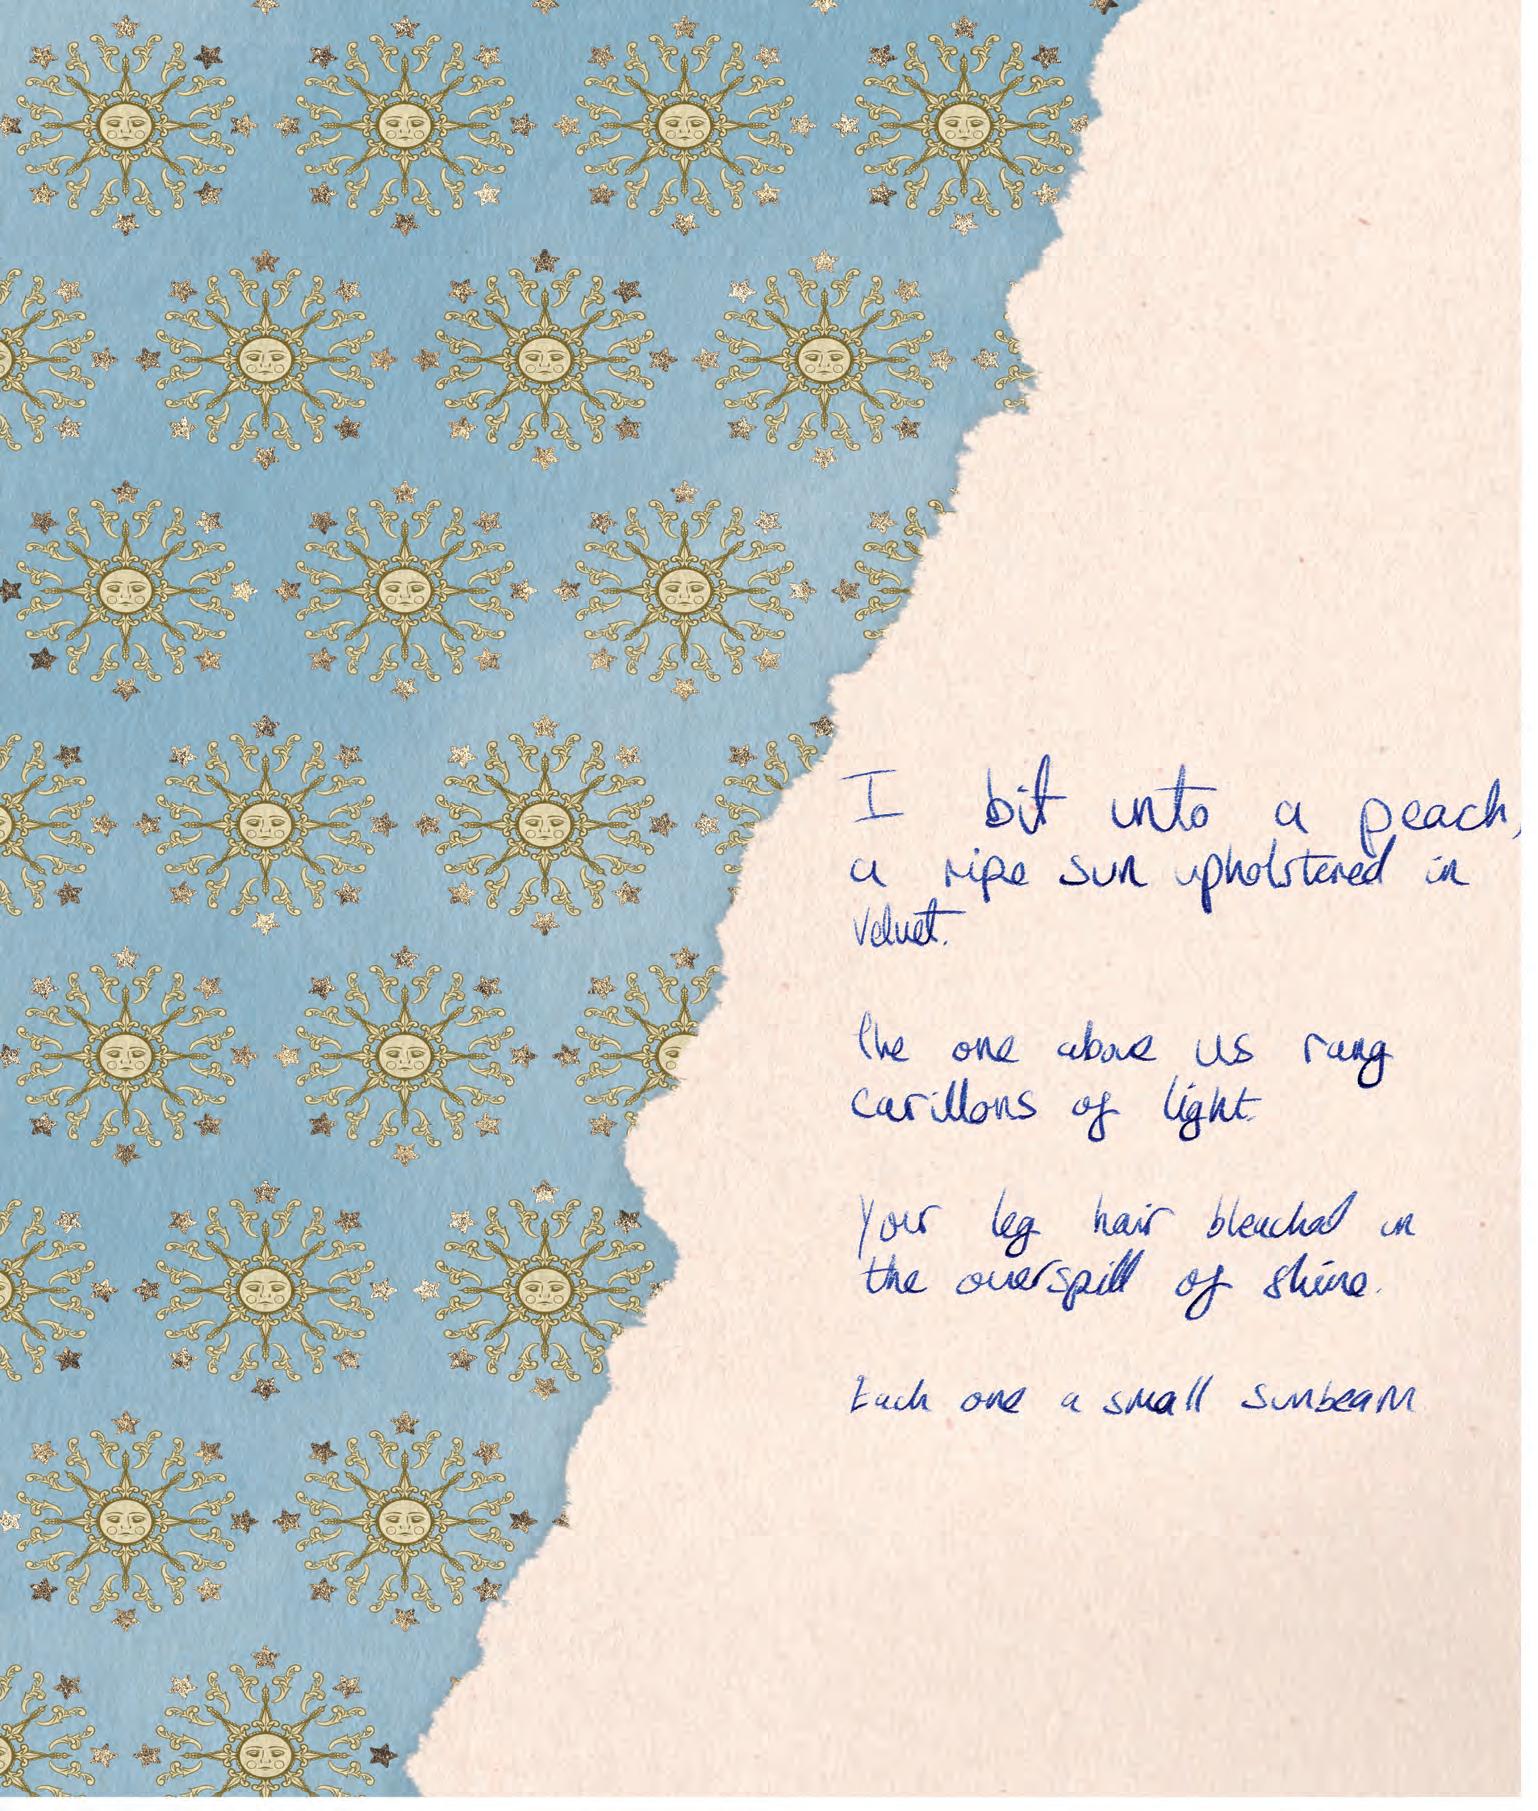 I bit into a peach,
a ripe sun upholstered in
velvet.
The one above us rang
carillons of light.
Your leg hair bleached in
the overspill of shine.
Each one a small sunbeam